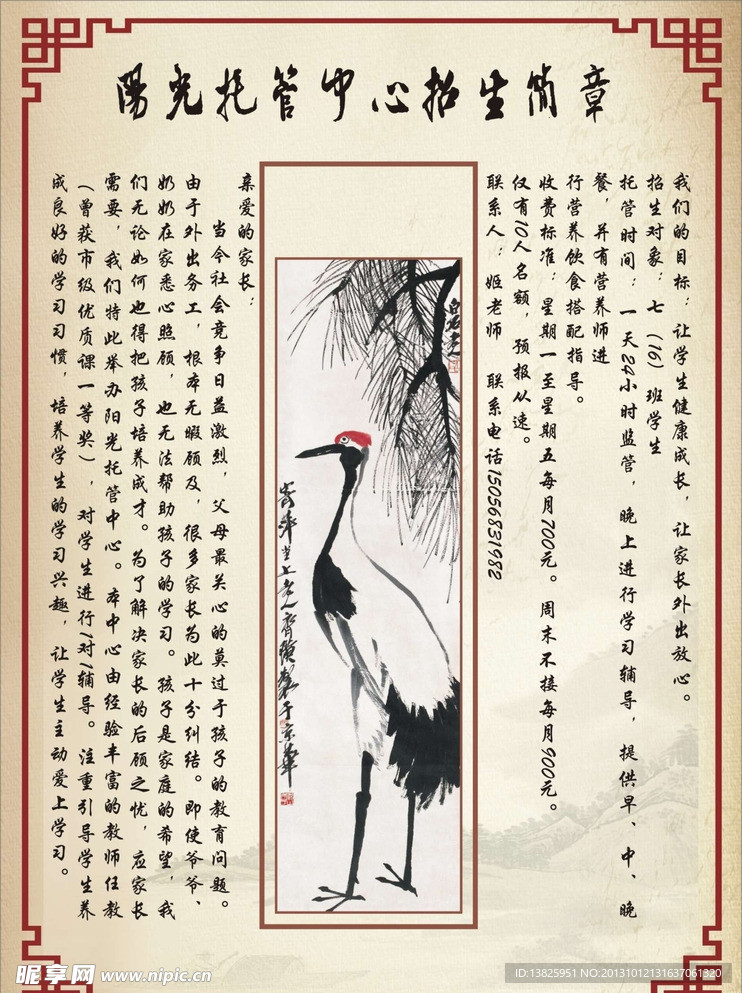 陽光托管中心招生简章
我们的目标：让学生健康成长，让家长外出放心。
招生对象：七（16）班学生
托管时间：一天24小时监管，晚上进行学习辅导，提供早、中、晚
餐，并有营养师进
行营养饮食搭配指导。
收费标准：星期一至星期五每月700元。周末不接每月900元。
仅有10人名额，预报从速。
联系人：姬老师 联系电话15056831982
白石老人
亲爱的家长：
当今社会竞争日益激烈，父母最关心的莫过于孩子的教育问题。
由于外出务工，根本无暇顾及，很多家长为此十分纠结。即使爷爷、
奶奶在家悉心照顾，也无法帮助孩子的学习。孩子是家庭的希望，我
们无论如何也得把孩子培养成才。为了解决家长的后顾之忧，应家长
需要，我们特此举办阳光托管中心。本中心由经验丰富的教师任教
（曾获市级优质课一等奖），对学生进行1对1辅导。注重引导学生养
成良好的学习习惯，培养学生的学习兴趣，让学生主动爱上学习。
昵享网 www.nipic.cn
ID:13825951 NO:20131012131637061320